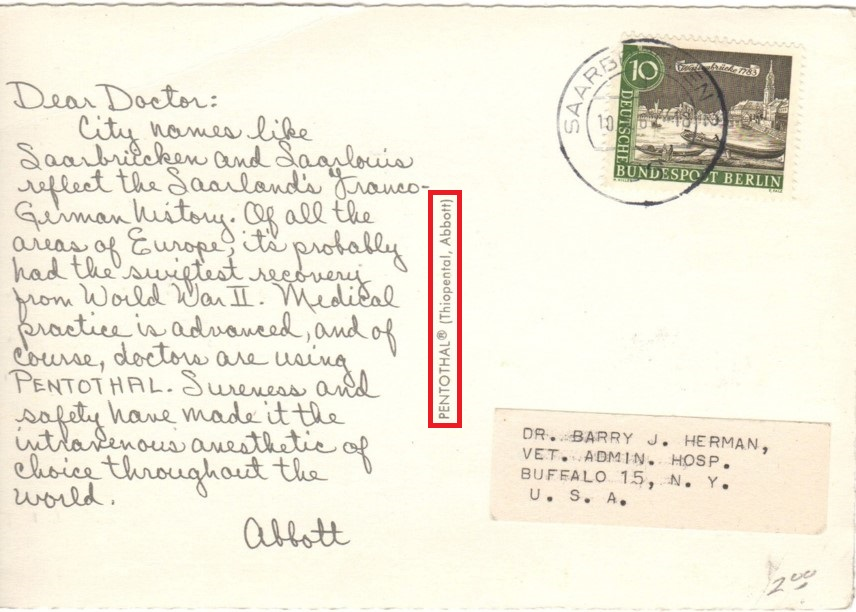 Dear Doctor:
City names like
Saarbrücken and Saarlouis
reflect the Saarland's Franco-
German history. Of all the
areas of Europe, it's probably
had the swiftest recovery
from World War II. Medical
practice is advanced, and of
course, doctors are using
PENTOTHAL. Sureness and
safety have made it the
intravenous anesthetic of
choice throughout the
world.
Abbott
PENTOTHAL® (Thiopental, Abbott)
SAARBRÜCKEN
10
1783
DEUTSCHE
BUNDESPOST BERLIN
DR. BARRY J. HERMAN,
VET. ADMIN. HOSP.
BUFFALO 15, N. Y.
U. S. A.
2.00